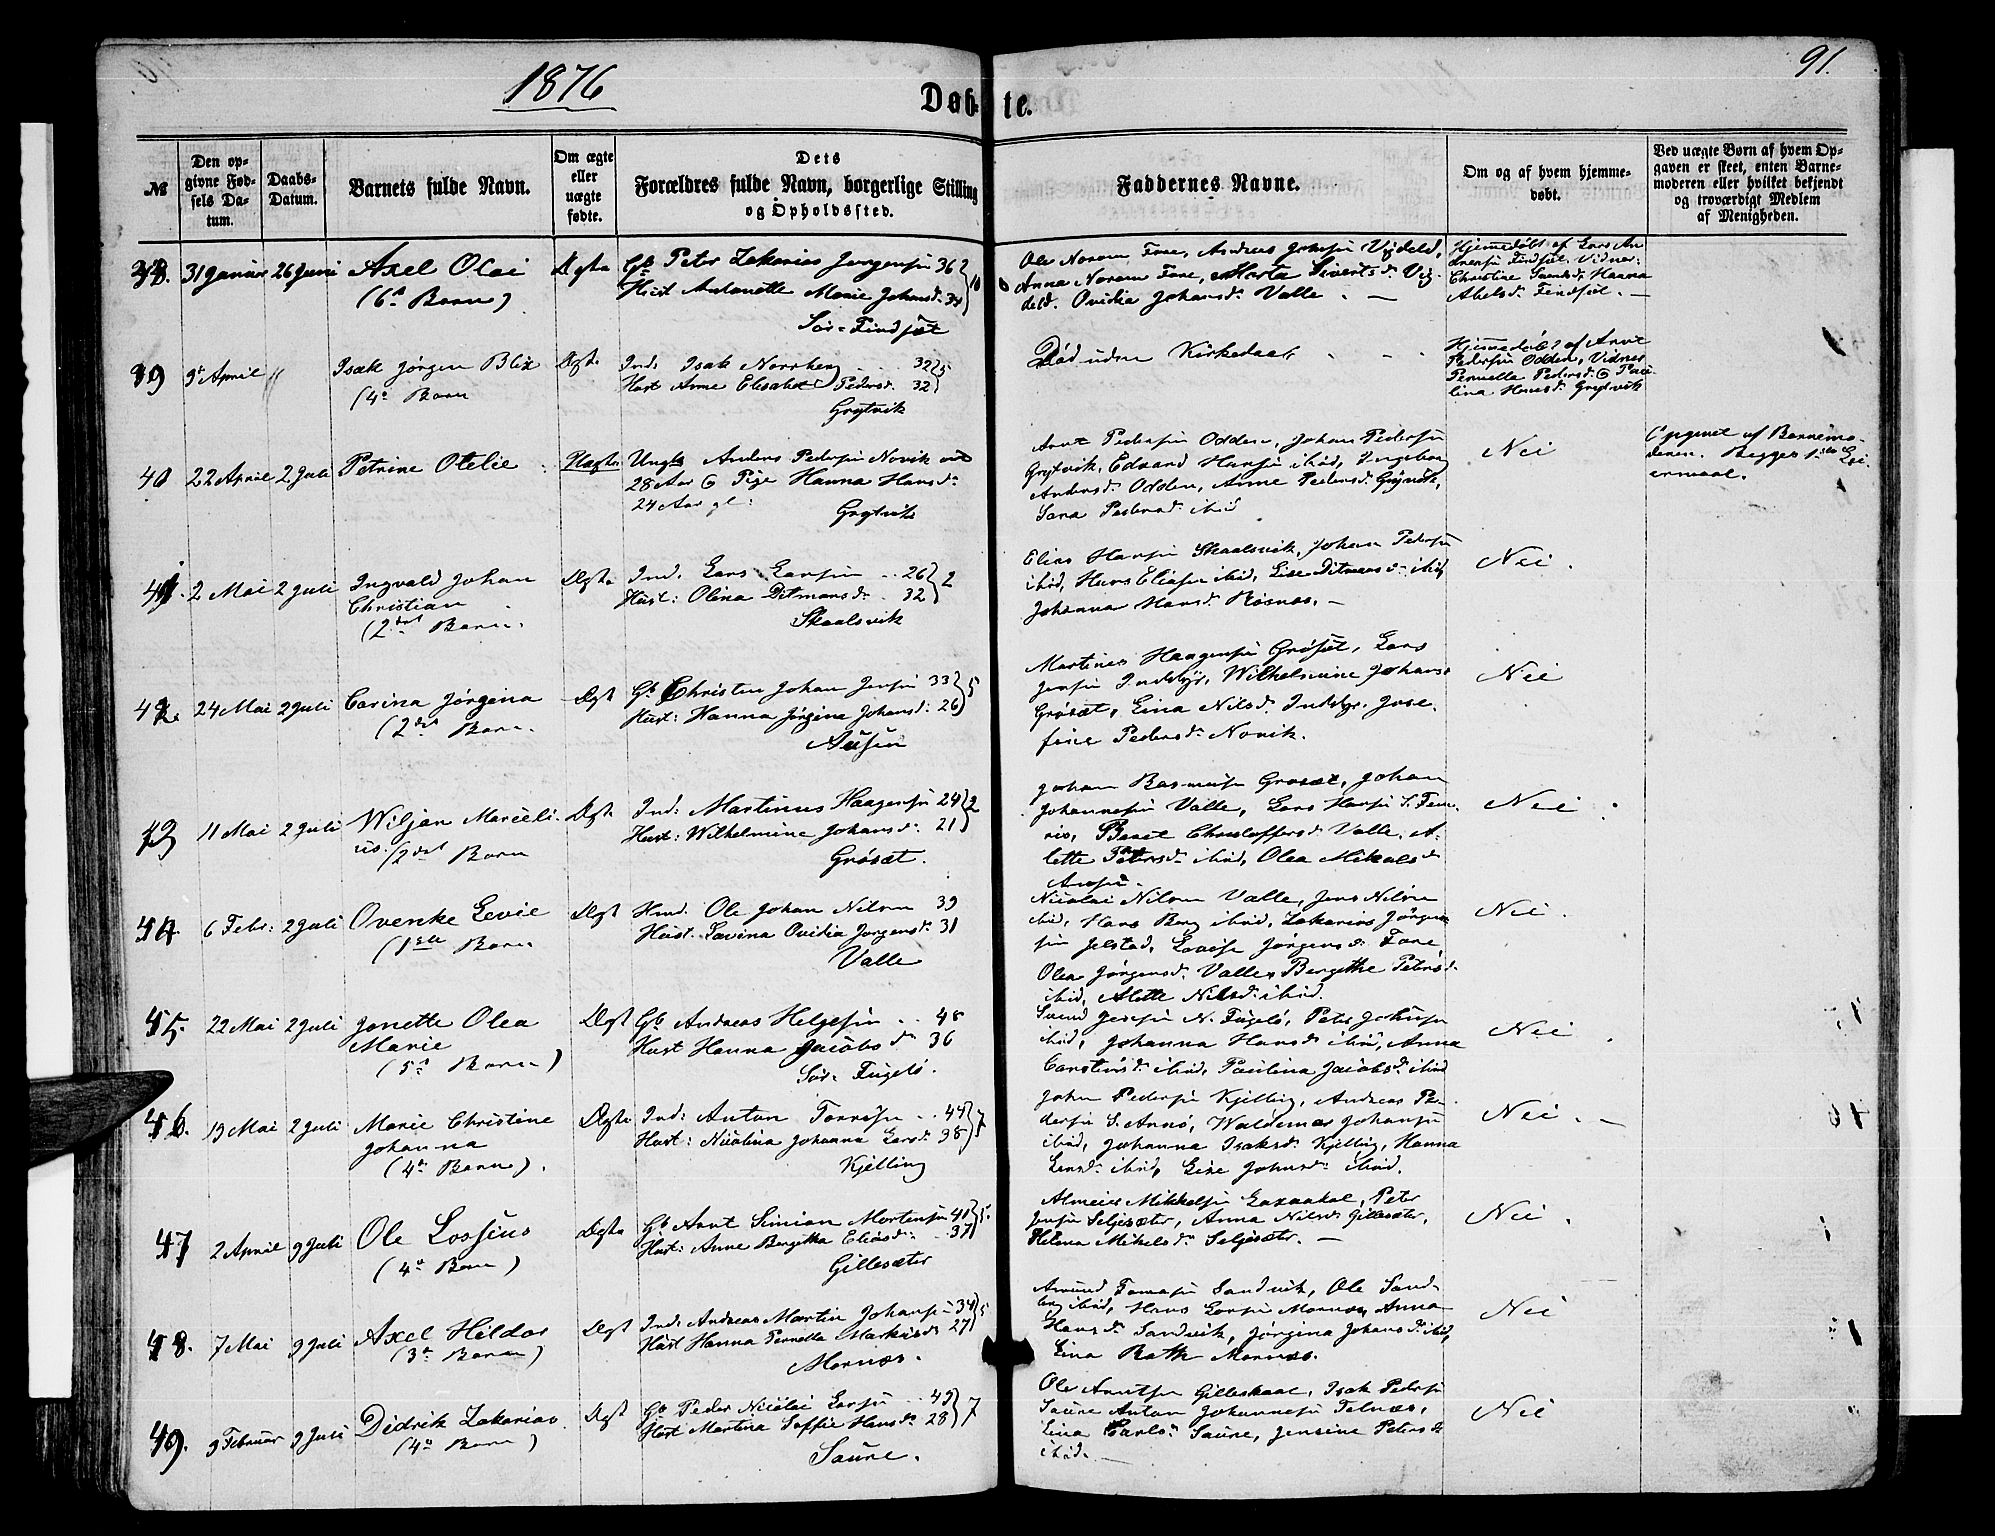 1876
91.
Døbte.
№
Den opgivne Fødsels Datum.
Daabs-Datum.
Barnets fulde Navn.
Om ægte eller uægte fødte.
Dets Forældres fulde Navn, borgerlige Stilling og Opholdssted.
Faddernes Navne.
Om og af hvem hjemmedøbt.
Ved uægte Børn af hvem Opgaven er skeet, enten Barnemoderen eller hvilket bekjendt og troværdigt Medlem af Menigheden.
38. 31 Januar 26 Juni Axel Olai Ægte Gb Peter Zakarias Jørgensen 36
(6te Barn) Hust Antonette Marie Johnsd. 34
Sør-Findsæt
Ole Norum Fore, Andreas Johnsen Vigdeld,
Anna Norum Fore, Marta Sivertsd. Vig-
deld. Ovidia Johansd. Valle. —
Hjemmedøbt af Lars An
dreasen Findsæt. Vidner
Christine Larsd. Hanna
Abelsd. Findsæt. —
39 9de April " Isak Jørgen Blix Ægte Ind. Isak Norrberg 32 5
(4de Barn Hust Anne Elisabet Pedersd. 32
Grytvik
Død uden Kirkedaab
Hjemmedøbt af Arnt
Pedersen Odden, Vidner
Pernella Pedersd. & Pau-
lina Hansd. Grytvik
40 22 April 2 Juli Petrine Otelie Uægte Ungk Anders Pedersen Novik
28 Aar & Pige Hanna Hansd.
24 Aar gl:
Grytvik
Arnt Pedersen Odden, Johan Pedersen
Grytvik, Edvard Hansen ibid, Ingeborg
Andersd. Odden, Anne Pedersd. Grytvik,
Sara Pedersd. ibid
Nei
Opgivet af Barnemo-
deren. Begges 1ste Lei-
ermaal.
41. 2 Mai 2 Juli Ingvald Johan Ægte Ind. Lars Larsen .. 26 2
Christian Hust: Olina Ditmansd. 32
(2det Barn. Skaalsvik
Elias Hansen Skaalsvik, Johan Pedersen
ibid, Hans Eliasen ibid, Lise Ditmansd. ibid,
Johanna Hansd. Røsnæs. —
Nei.
42. 24 Mai 2 Juli Carina Jørgina Ægte Gb Christen Johan Jensen 33 5
(2det Barn. Hust: Hanna Jørgine Johansd: 26
Ausen
Martines Haagensen Grøsæt, Lars
Jensen Inddyr, Wilhelmine Johans
Grøsæt, Lina Nilsd. Inddyr. Jose-
fine Pedersd. Novik.
Nei
43 11 Mai 2 Juli Wiljan Marieli- Ægte Ind: Martinus Haagensen 24 2
us. (2det Barn Hust: Wilhelmine Johansd: 21
Grøsæt.
Johan Rasmusen Grøsæt, Johan
Johannesen Valle, Lars Hansen S. Fen-
ris, Beret Christoffersd. Valle, A-
lette Petersd. ibid, Olea Mikalsd
Nei
44. 6 Febr: 2 Juli Ovenke Levie Ægt Hmd. Ole Johan Nilsen 39
(1ste Barn Hust. Lavina Ovidia Jørgensd. 31
Valle
Nicolai Nilsen Valle, Jens Nilsen
ibid, Hans Berg ibid, Zakarias Jørgen
sen Jelstad, Lovise Jørgensd. Fore
Olea Jørgensd. Valle, Bergithe Petersd.
ibid, Alette Nilsd. ibid.
Nei.
45. 22 Mai 2 Juli Jonette Olea Ægt Gb Andreas Helgesen .. 48
Marie Hust Hanna Jacobsd 36
(5te Barn) Sør-Fugelø.
Svend Jensen N. Fugelø, Peter Johnsen
ibid, Johanna Hansd. ibid, Anna
Carstensd. ibid, Paulina Jacobsd. ibid
Nei
46. 19 Mai 2 Juli Marie Christine Ægte Ind: Anton Torresen .. 44 7
Johanna Hust: Nicolina Johanna Larsd. 38
(4de Barn). Kjelling
John Pedersen Kjelling, Andreas Pe-
dersen S. Arnø, Waldemar Johansen
ibid, Johanna Isaksd. Kjelling, Hanna
Larsd. ibid, Lise Johnsd. ibid.
Nei. —
47 2 April 9 Juli Ole Lossius Ægte Gb Arnt Simion Mortensen 41 5.
(4de Barn) Hust: Anne Bergitha Eliasd: 37
Gillesæter
Mikkelsen, Peter
Jensen Seljesæter, Anna Nilsd. Gillesæter,
Helena Mikelsd. Seljesæter. —
Nei.
48. 7 Mai 9 Juli Axel Hildor Ægt Ind: Andreas Martin Johansen 34 5
(3de Barn) Hust Hanna Pernella Markusd: 27
Mornæs.
Amund Tomasen Sandvik, Ole Sand-
berg ibid, Hans Larsen Mornæs, Anna
Hansd. Sandvik, Jørgina Johansd. ibid,
Lina Rath Mornæs.
Nei
49. 9 Februar 9 Juli Didrik Zakarias Ægt Gb Peder Nicolai Larsen .. 49 7
(4de Barn) Hust Martina Soffie Hansd. 28
Saure.
Ole Arntsen Gilleskaal, Isak Pedersen
Saure Anton Johannesen Telnæs,
Lina Carlsd. Saure, Jensine Petersd
ibid. —
Nei